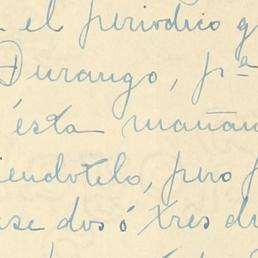 el periodico q
Durango, pª
ésta mañan
iendotelo, pero p
se dos ó tres di